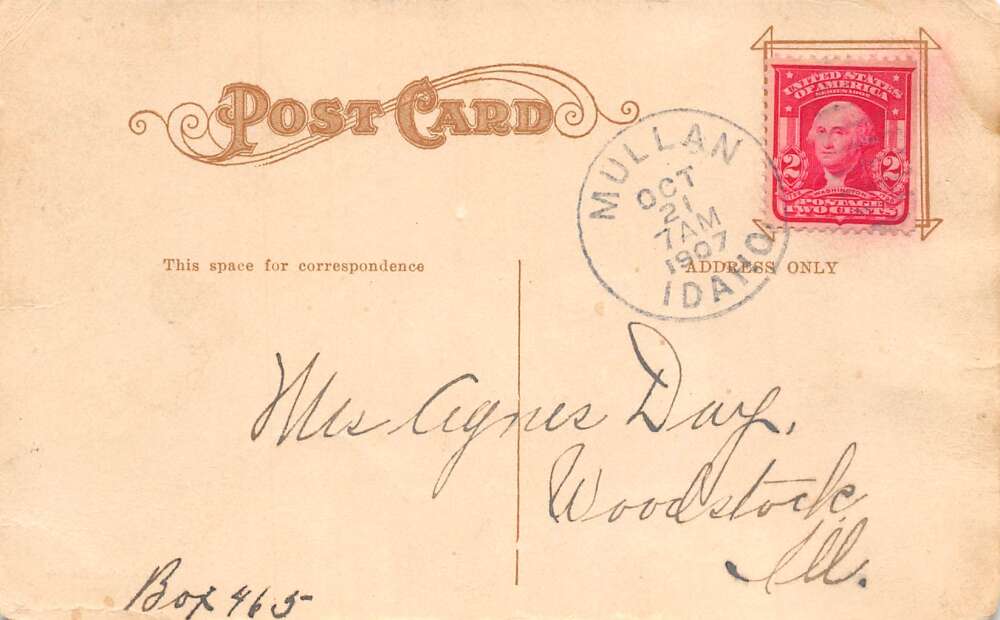 POST CARD
UNITED STATES
OF AMERICA
2 2
WASHINGTON
POSTAGE
TWO CENTS
MULLAN
OCT
21
7AM
1907
IDAHO
This space for correspondence
ADDRESS ONLY
Mrs Agnes Day.
Woodstock
Ill.
Box 465